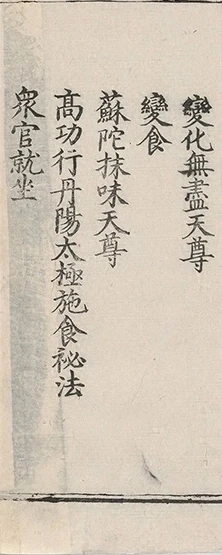 變化無盡天尊
變食
蘇陀抹味天尊
高功行丹陽太極施食祕法
眾官就坐